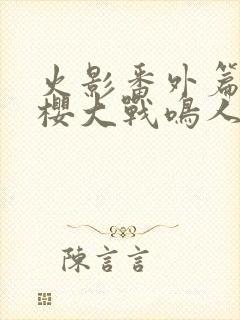 火影番外篇
樱大戰鳴人
陳言言